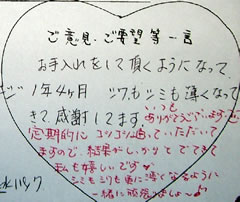 ご意見・ご要望等一言
お手入れをして頂くようになって、
1年4ヶ月 シワもシミも薄くなって
きて、感謝してます
いつも
ありがとうございます♡
定期的にコツコツ通っていただいて
ますので、結果がしっかりとでてきて
私も嬉しいです♥
シミもシワも更に薄くなるように
一緒に頑張りましょ〜♪
水パック